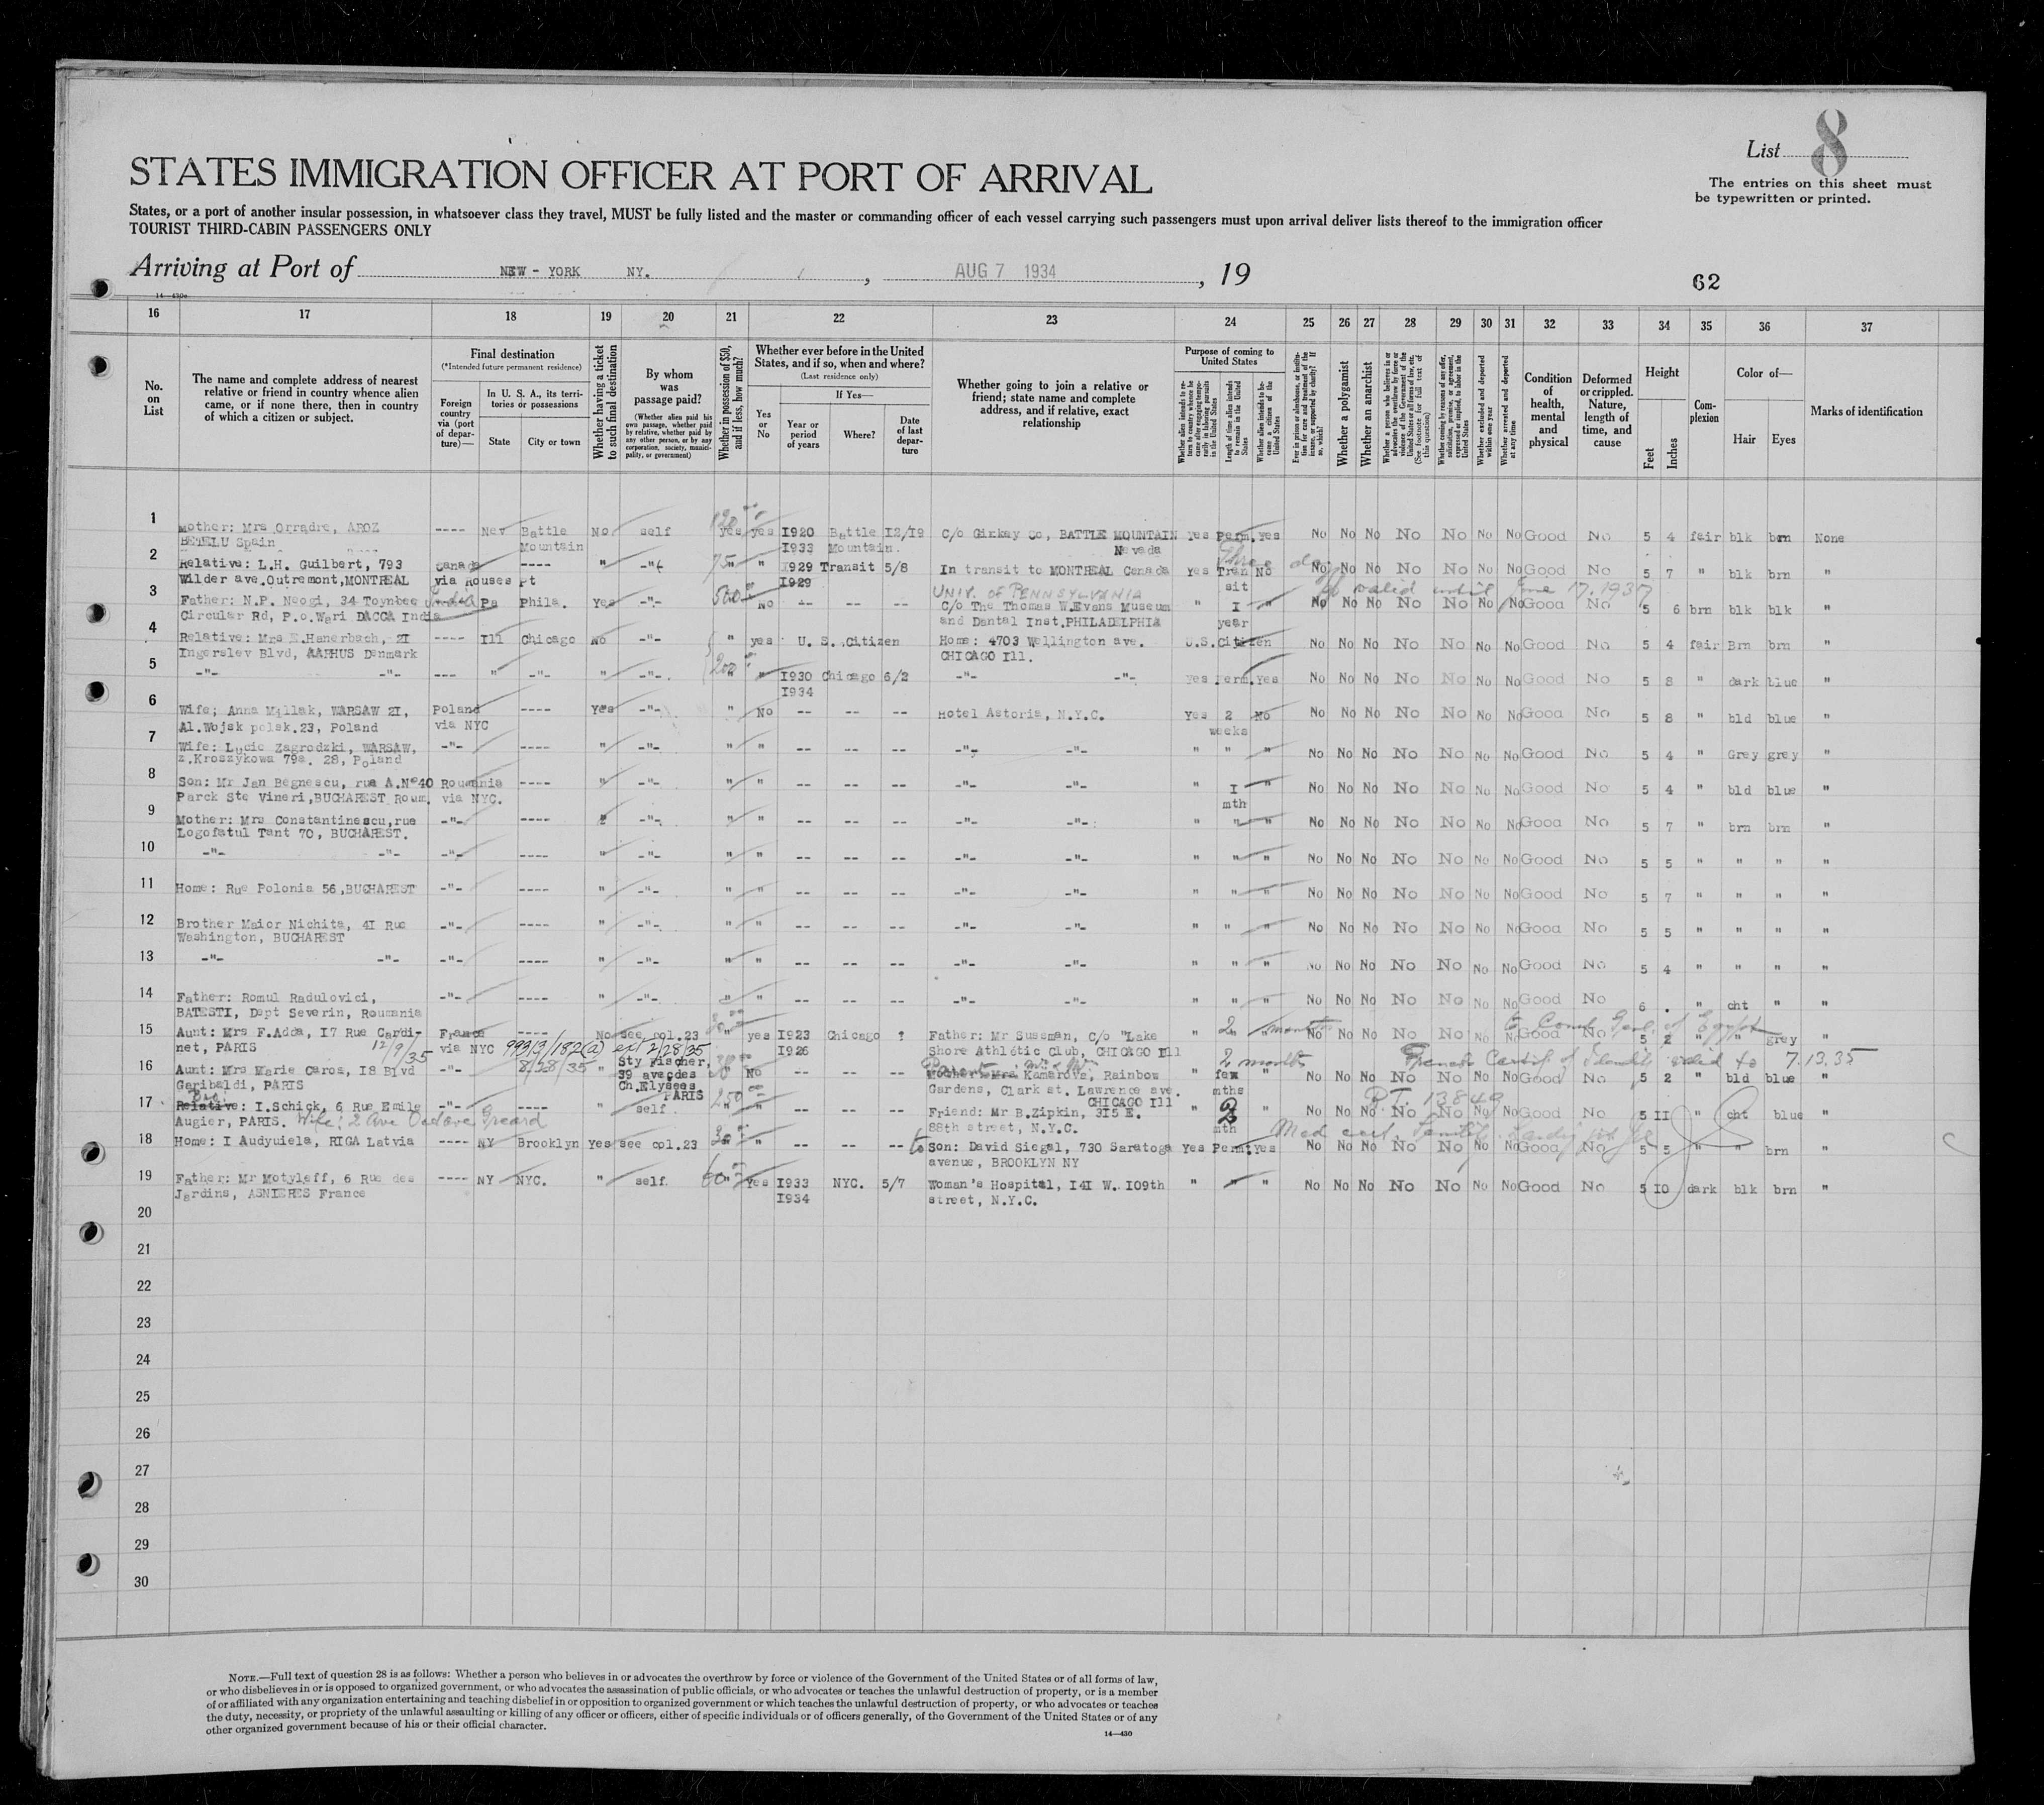 List 8
The entries on this sheet must
be typewritten or printed.
STATES IMMIGRATION OFFICER AT PORT OF ARRIVAL
States, or a port of another insular possession, in whatsoever class they travel, MUST be fully listed and the master or commanding officer of each vessel carrying such passengers must upon arrival deliver lists thereof to the immigration officer
TOURIST THIRD-CABIN PASSENGERS ONLY
Arriving at Port of NEW - YORK NY. , AUG 7 1934 , 19
62
14—430a
16 17 18 19 20 21 22 23 24 25 26 27 28 29 30 31 32 33 34 35 36 37
No. on List
The name and complete address of nearest relative or friend in country whence alien came, or if none there, then in country of which a citizen or subject.
Final destination
(*Intended future permanent residence)
Foreign country via (port of departure)—
In U. S. A., its territories or possessions
State City or town
Whether having a ticket to such final destination
By whom was passage paid?
(Whether alien paid his own passage, whether paid by relative, whether paid by any other person, or by any corporation, society, municipality, or government)
Whether in possession of $50, and if less, how much?
Whether ever before in the United States, and if so, when and where?
(Last residence only)
Yes or No
If Yes—
Year or period of years Where? Date of last departure
Whether going to join a relative or friend; state name and complete address, and if relative, exact relationship
Purpose of coming to United States
Length of time alien intends to remain in the United States
Whether alien intends to become a citizen of the United States
Whether a polygamist
Whether an anarchist
Whether excluded and deported within one year
Whether arrested and deported at any time
Condition of health, mental and physical
Deformed or crippled. Nature, length of time, and cause
Height
Feet Inches
Complexion
Color of—
Hair Eyes
Marks of identification
1 Mother: Mrs Orradre, AROZ ---- Nev Battle No self yes yes 1920 Battle 12/19 C/o Ginkay Co, BATTLE MOUNTAIN Yes Perm. Yes No No No No No No No Good No 5 4 fair blk brn None
BETELU Spain Mountain 1933 Mountain. Nevada
2 Relative: L.H. Guilbert, 793 Canada ---- " -"- 75 " 1929 Transit 5/8 In transit to MONTREAL Canada Yes Tran No No No No No No No No Good No 5 7 " blk brn "
Wilder ave.Outremont,MONTREAL via Rouses Pt 1929 sit
UNIV. OF PENNSYLVANIA valid until June 17. 1937
3 Father: N.P. Neogi, 34 Toynbee India Pa Phila. Yes -"- 500 No -- -- -- C/o The Thomas W.Evans Museum " I " No No No No No No No Good No 5 6 brn blk blk "
Circular Rd, P.o.Wari DACCA India and Dental Inst.PHILADELPHIA year
4 Relative: Mrs E.Hanerbach, 2I ---- Ill Chicago No -"- " yes U. S. Citizen Home: 4703 Wellington ave. U.S.Citizen No No No No No No No Good No 5 4 fair Brn brn "
Ingerslev Blvd, AARHUS Denmark CHICAGO Ill.
5 -"- -"- --- " -"- " -"- 200 " 1930 Chicago 6/2 -"- -"- Yes Perm. Yes No No No No No No No Good No 5 8 " dark blue "
1934
6 Wife; Anna Millak, WARSAW 2I, Poland ---- Yes -"- " No -- -- -- Hotel Astoria, N.Y.C. Yes 2 No No No No No No No No Good No 5 8 " bld blue "
Al.Wojsk polsk.23, Poland via NYC weeks
7 Wife: Lucie Zagrodzki, WARSAW, -"- ---- " -"- " " -- -- -- -"- -"- " " " No No No No No No No Good No 5 4 " Grey grey "
z.Kroszykowa 79a. 28, Poland
8 Son: Mr Jan Begnescu, rue A.N°40 Roumania ---- " -"- " " -- -- -- -"- -"- " I " No No No No No No No Good No 5 4 " bld blue "
Parck Ste Vineri,BUCHAREST Roum. via NYC. mth
9 Mother: Mrs Constantinescu,rue -"- ---- " -"- " " -- -- -- -"- -"- " " " No No No No No No No Good No 5 7 " brn brn "
Logofatul Tant 70, BUCHAREST.
10 -"- -"- -"- ---- " -"- " " -- -- -- -"- -"- " " " No No No No No No No Good No 5 5 " " " "
11 Home: Rue Polonia 56,BUCHAREST -"- ---- " -"- " " -- -- -- -"- -"- " " " No No No No No No No Good No 5 7 " " " "
12 Brother Maior Nichita, 4I Rue -"- ---- " -"- " " -- -- -- -"- -"- " " " No No No No No No No Good No 5 5 " " " "
Washington, BUCHAREST
13 -"- -"- -"- ---- " -"- " " -- -- -- -"- -"- " " " No No No No No No No Good No 5 4 " " " "
14 Father: Romul Radulovici, -"- ---- " -"- " " -- -- -- -"- -"- " " " No No No No No No No Good No 6 . " cht " "
BATESTI, Dept Severin, Roumania
15 Aunt: Mrs F.Adda, I7 Rue Cardi- France ---- No see col.23 " yes 1923 Chicago ? Father: Mr Sussman, C/o "Lake " 2 months No No No No No No No Good No 5 2 " " grey "
net, PARIS 12/9/35 via NYC 999/3/182(a) ext 2/28/35 1926 Shore Athlétic Club, CHICAGO Ill
8/28/35 2 months French Certif of Identity valid to 7.13.35
16 Aunt: Mrs Marie Caros, I8 Blvd -"- " Sty Fischer, " No -- -- -- Mother: Mrs Kamarova, Rainbow " few " No No No No No No No Good No 5 2 " bld blue "
Garibaldi, PARIS 39 av.des Ch.Elysees PARIS Gardens, Clark st. Lawrence ave. mths
CHICAGO Ill
17 Relative: I.Schick, 6 Rue Emile -"- ---- " self 250 " " -- -- -- Friend: Mr B.Zipkin, 3I5 E. " 2 " No No No No No No No Good No 5 II " cht blue "
Augier, PARIS. Wife: 2 Ave Octave Greard 88th street, N.Y.C. mth
18 Home: I Audyuiela, RIGA Latvia ---- NY Brooklyn Yes see col.23 " -- -- -- to Son: David Siegal, 730 Saratoga Yes Perm. Yes No No No No No No No Good No 5 5 " " brn "
avenue, BROOKLYN NY
19 Father: Mr Motyleff, 6 Rue des ---- NY NYC. " self 60 Yes 1933 NYC. 5/7 Woman's Hospital, I4I W. I09th " " " No No No No No No No Good No 5 I0 dark blk brn "
Jardins, ASNIERES France 1934 street, N.Y.C.
20
21
22
23
24
25
26
27
28
29
30
NOTE.—Full text of question 28 is as follows: Whether a person who believes in or advocates the overthrow by force or violence of the Government of the United States or of all forms of law,
or who disbelieves in or is opposed to organized government, or who advocates the assassination of public officials, or who advocates or teaches the unlawful destruction of property, or is a member
of or affiliated with any organization entertaining and teaching disbelief in or opposition to organized government or which teaches the unlawful destruction of property, or who advocates or teaches
the duty, necessity, or propriety of the unlawful assaulting or killing of any officer or officers, either of specific individuals or of officers generally, of the Government of the United States or of any
other organized government because of his or their official character.
14—430